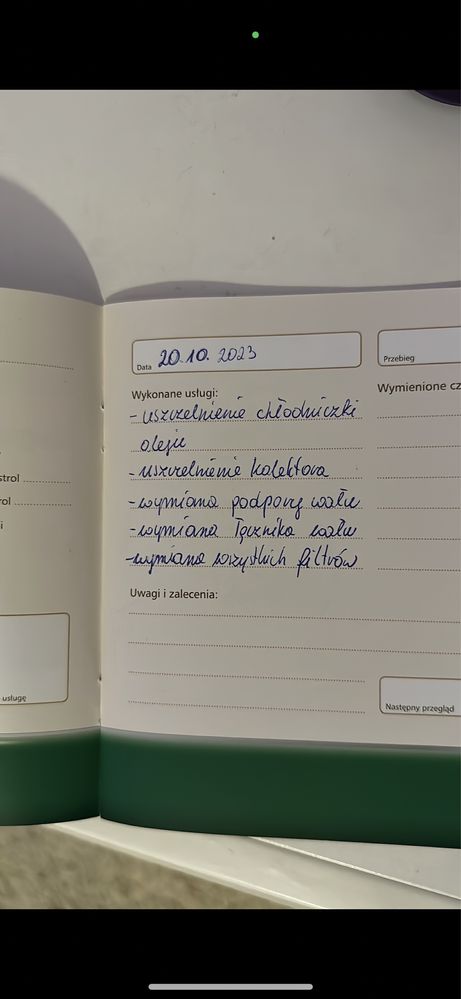 Data 20.10.2023
Przebieg
Wykonane usługi:
Wymienione cz
- uszczelnienie chłodniczki
oleju
- uszczelnienie kolektora
- wymiana podpory wału
- wymiana łącznika wału
- wymiana wszystkich filtrów
Uwagi i zalecenia:
Następny przegląd
strol
rol
i
usługę